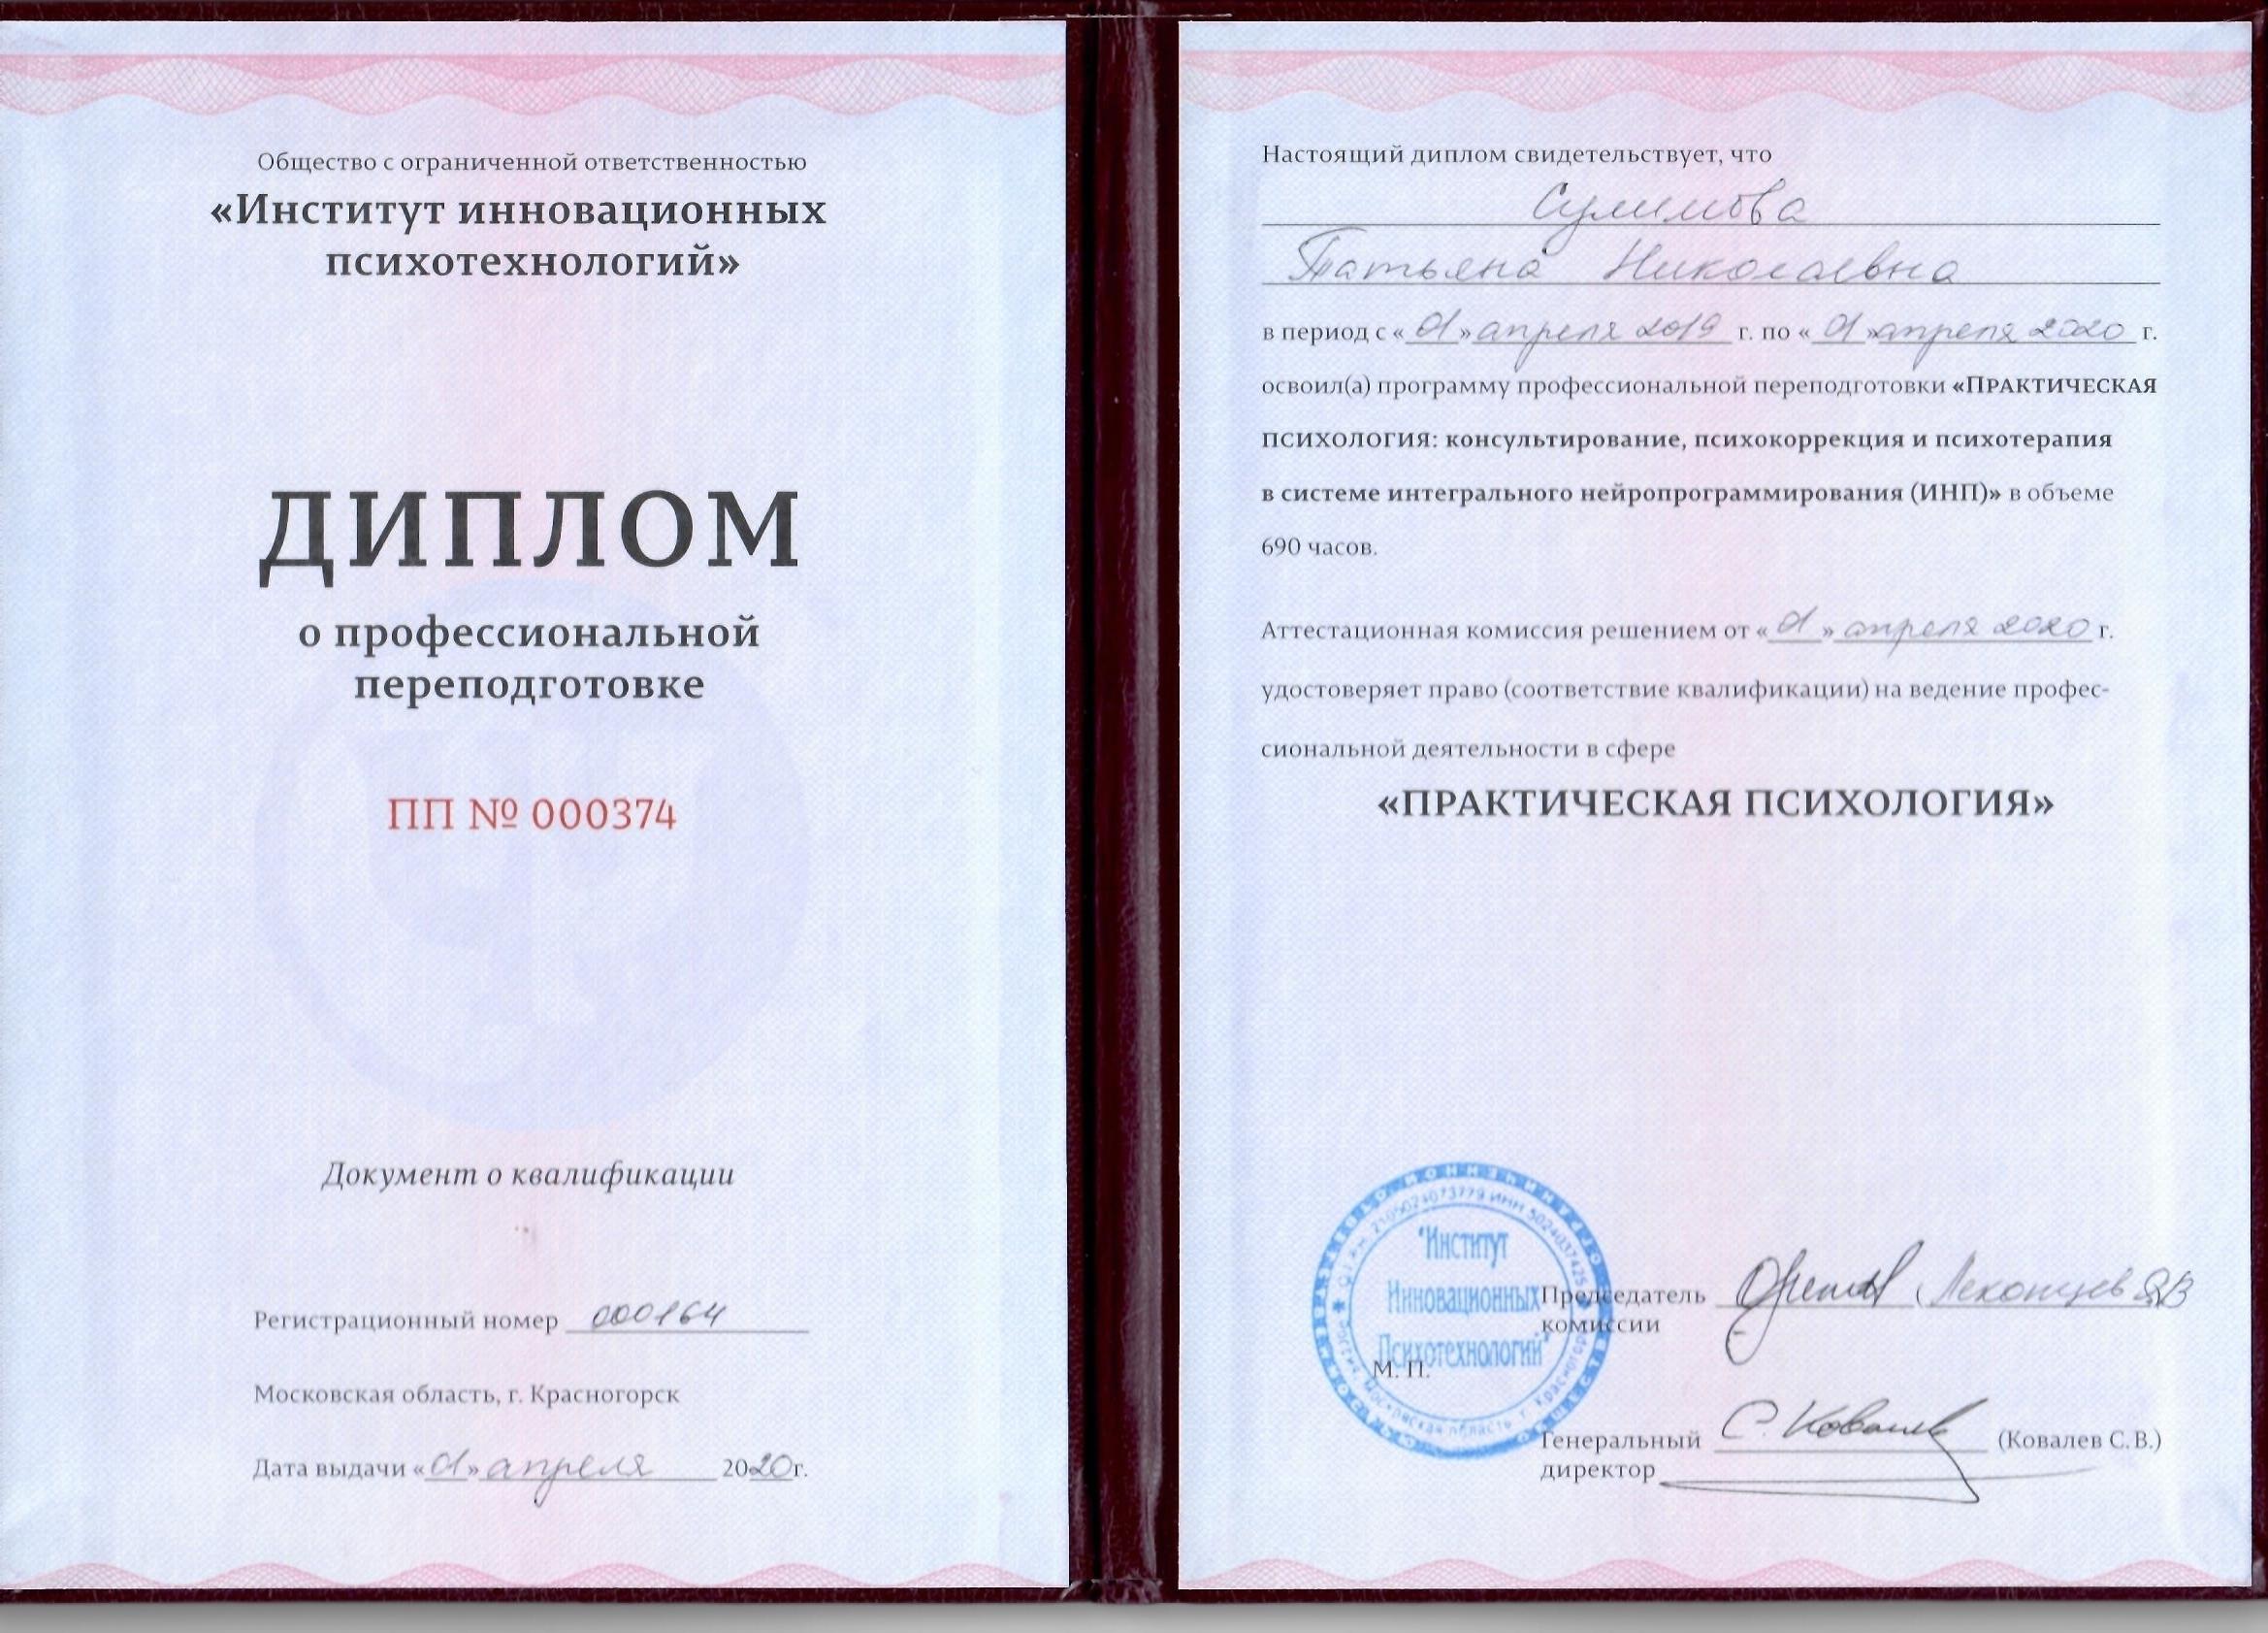 Общество с ограниченной ответственностью
«Институт инновационных
психотехнологий»
ДИПЛОМ
о профессиональной
переподготовке
ПП № 000374
Документ о квалификации
Регистрационный номер 000164
Московская область, г. Красногорск
Дата выдачи «01» апреля 2020г.
Настоящий диплом свидетельствует, что
Сулимова
Татьяна Николаевна
в период с «01» апреля 2019 г. по «01» апреля 2020 г.
освоил(а) программу профессиональной переподготовки «ПРАКТИЧЕСКАЯ
ПСИХОЛОГИЯ: консультирование, психокоррекция и психотерапия
в системе интегрального нейропрограммирования (ИНП)» в объеме
690 часов.
Аттестационная комиссия решением от «01» апреля 2020 г.
удостоверяет право (соответствие квалификации) на ведение профес-
сиональной деятельности в сфере
«ПРАКТИЧЕСКАЯ ПСИХОЛОГИЯ»
"Институт
Инновационных
Психотехнологий"
М. П.
Председатель
комиссии
Генеральный С. Ковалев (Ковалев С.В.)
директор